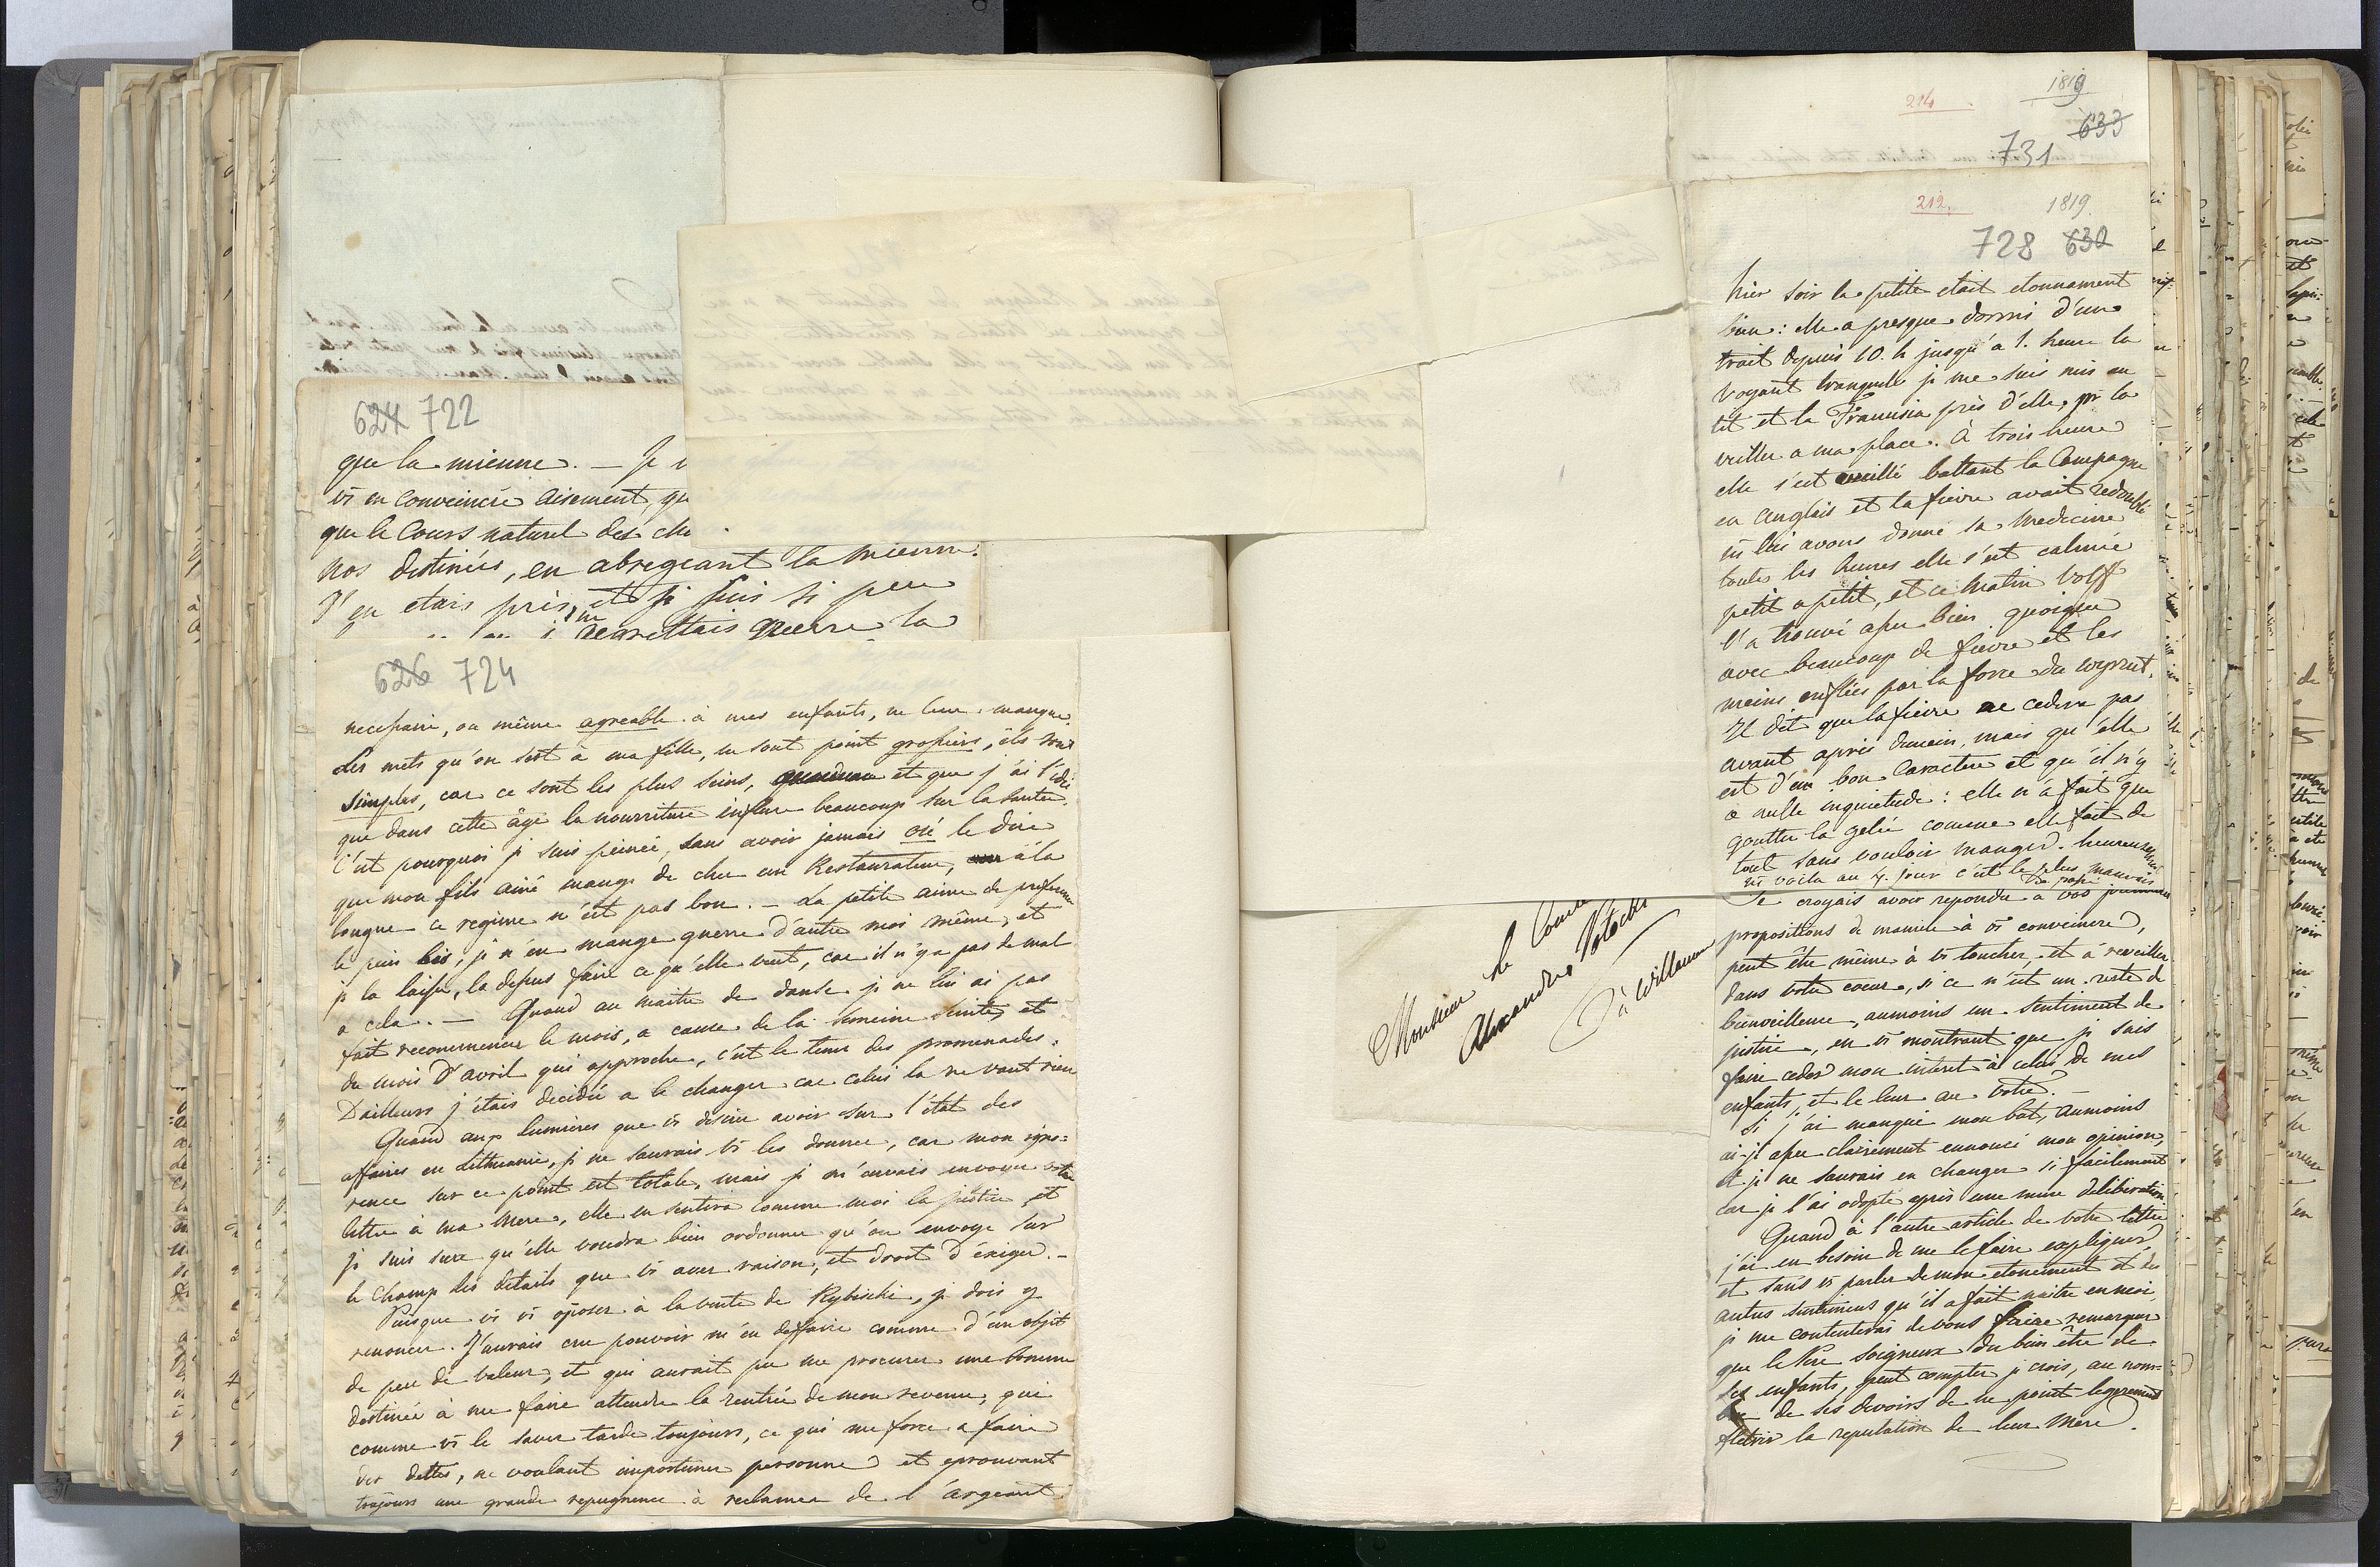 624 722
que la mienne. — Je v
vs en conveincre aisement, qu
que le Cours naturel des cho
nos destinées, en abregeant la mienne.
J'en etais près, et je suis si peu
regrettais guerre la
626 724
necessaire, ou même agreable à mes enfants, ne leur manque.
Les mets qu'on sert à ma fille, ne sont point grossiers, ils sont
simples, car ce sont les plus seins, et que j'ai l'idée
que dans cette âge la nourriture influe beaucoup sur la santée.
C'est pourquoi je suis peinée, sans avoir jamais osé le dire
que mon fils ainé mange de chez un Restaurateur, à la
longue ce regime n'est pas bon. — La petite aime de preference
le pain bis, je n'en mange guerre d'autre moi même, et
je la laisse, la dessus faire ce qu'elle veut, car il n'y a pas de mal
a cela. — Quand au maitre de danse je ne lui ai pas
fait recommencer le mois, a cause de la semeine seinte, et
du mois d'avril qui approche, c'est le tems des promenades.
D'ailleurs j'étais decidée a le changer car celui la ne vaut rien
Quand aux lumières que vs desirez avoir sur l'état des
affaires en Lithuanie, je ne saurais vs les donner, car mon igno=
rence sur ce point est totale, mais je m'envais envoyer votre
lettre à ma Mere, elle en sentira comme moi la justice, et
je suis sure qu'elle voudra bien ordonner qu'on envoye sur
le champ les details que vs avez raison, et droit d'éxiger. —
Puisque vs vs oposez à la vente de Rybischki, je dois y
renoncer. J'aurais cru pouvoir m'en deffaire comme d'un objet
de peu de valeur, et qui aurait pu me procurer une somme
destinée à me faire attendre la rentrée de mon revenu, qui
comme vs le savez tarde toujours, ce qui me force a faire
des dettes, ne voulant importuner personne et eprouvant
toujours une grande repugnence à reclamer de l'argeant
214 1819
731 633
212. 1819
728 630
hier soir la petite etait etonnament
bien: elle a presque dormi d'un
trait depuis 10. h jusqu'a 1. heure la
voyant tranquile je me suis mis au
lit et la Franusia près d'elle, pr la
veiller a ma place. À trois heures
elle s'est eveillé battant la Campagne
en anglais et la fievre avait redoublé
ns lui avons donné sa medecine
toutes les heures elle s'est calmée
petit a petit, et ce matin Volff
l'a trouvé assez bien quoique
avec beaucoup de fievre et les
meins enflées par la force du
Il dit que la fievre ne cedera pas
avant après demein, mais qu'elle
est d'un bon Caractere et qu'il n'y
a nulle inquietude: elle n'a fait que
goutter la gelée comme elle fait de
tout sans vouloir manger. heureusement
ns voila au 4. jour c'est le plus mauvais
Je croyais avoir repondu à vos premieres
propositions de maniere à vs conveincre,
peut être même à vs toucher, et à reveiller
dans votre coeur, si ce n'est un reste de
bienveillence, aumoins un sentiment de
justice, en vs montrant que je sais
faire ceder mon interet à celui de mes
enfants, et le leur au votre.
Si j'ai manqué mon but, aumoins
ai-je assez clairement ennoncé mon opinion,
et je ne saurais en changer si facilement
car je l'ai adopté après une mure deliberation
Quand à l'autre article de votre lettre
j'ai eu besoin de me le faire expliquer,
et sans vs parler de mon etonement et des
autres sentimens qu'il a fait naitre en moi,
je me contenterai de vous faire remarquer
que le Père soigneux du bien être de
ses enfants, peut compter je crois, au nom-
bre de ses devoirs de ne point legerement
fletrir la reputation de leur Mere.
Monsieur le Comte
Alexandre Potocki
à Willanow